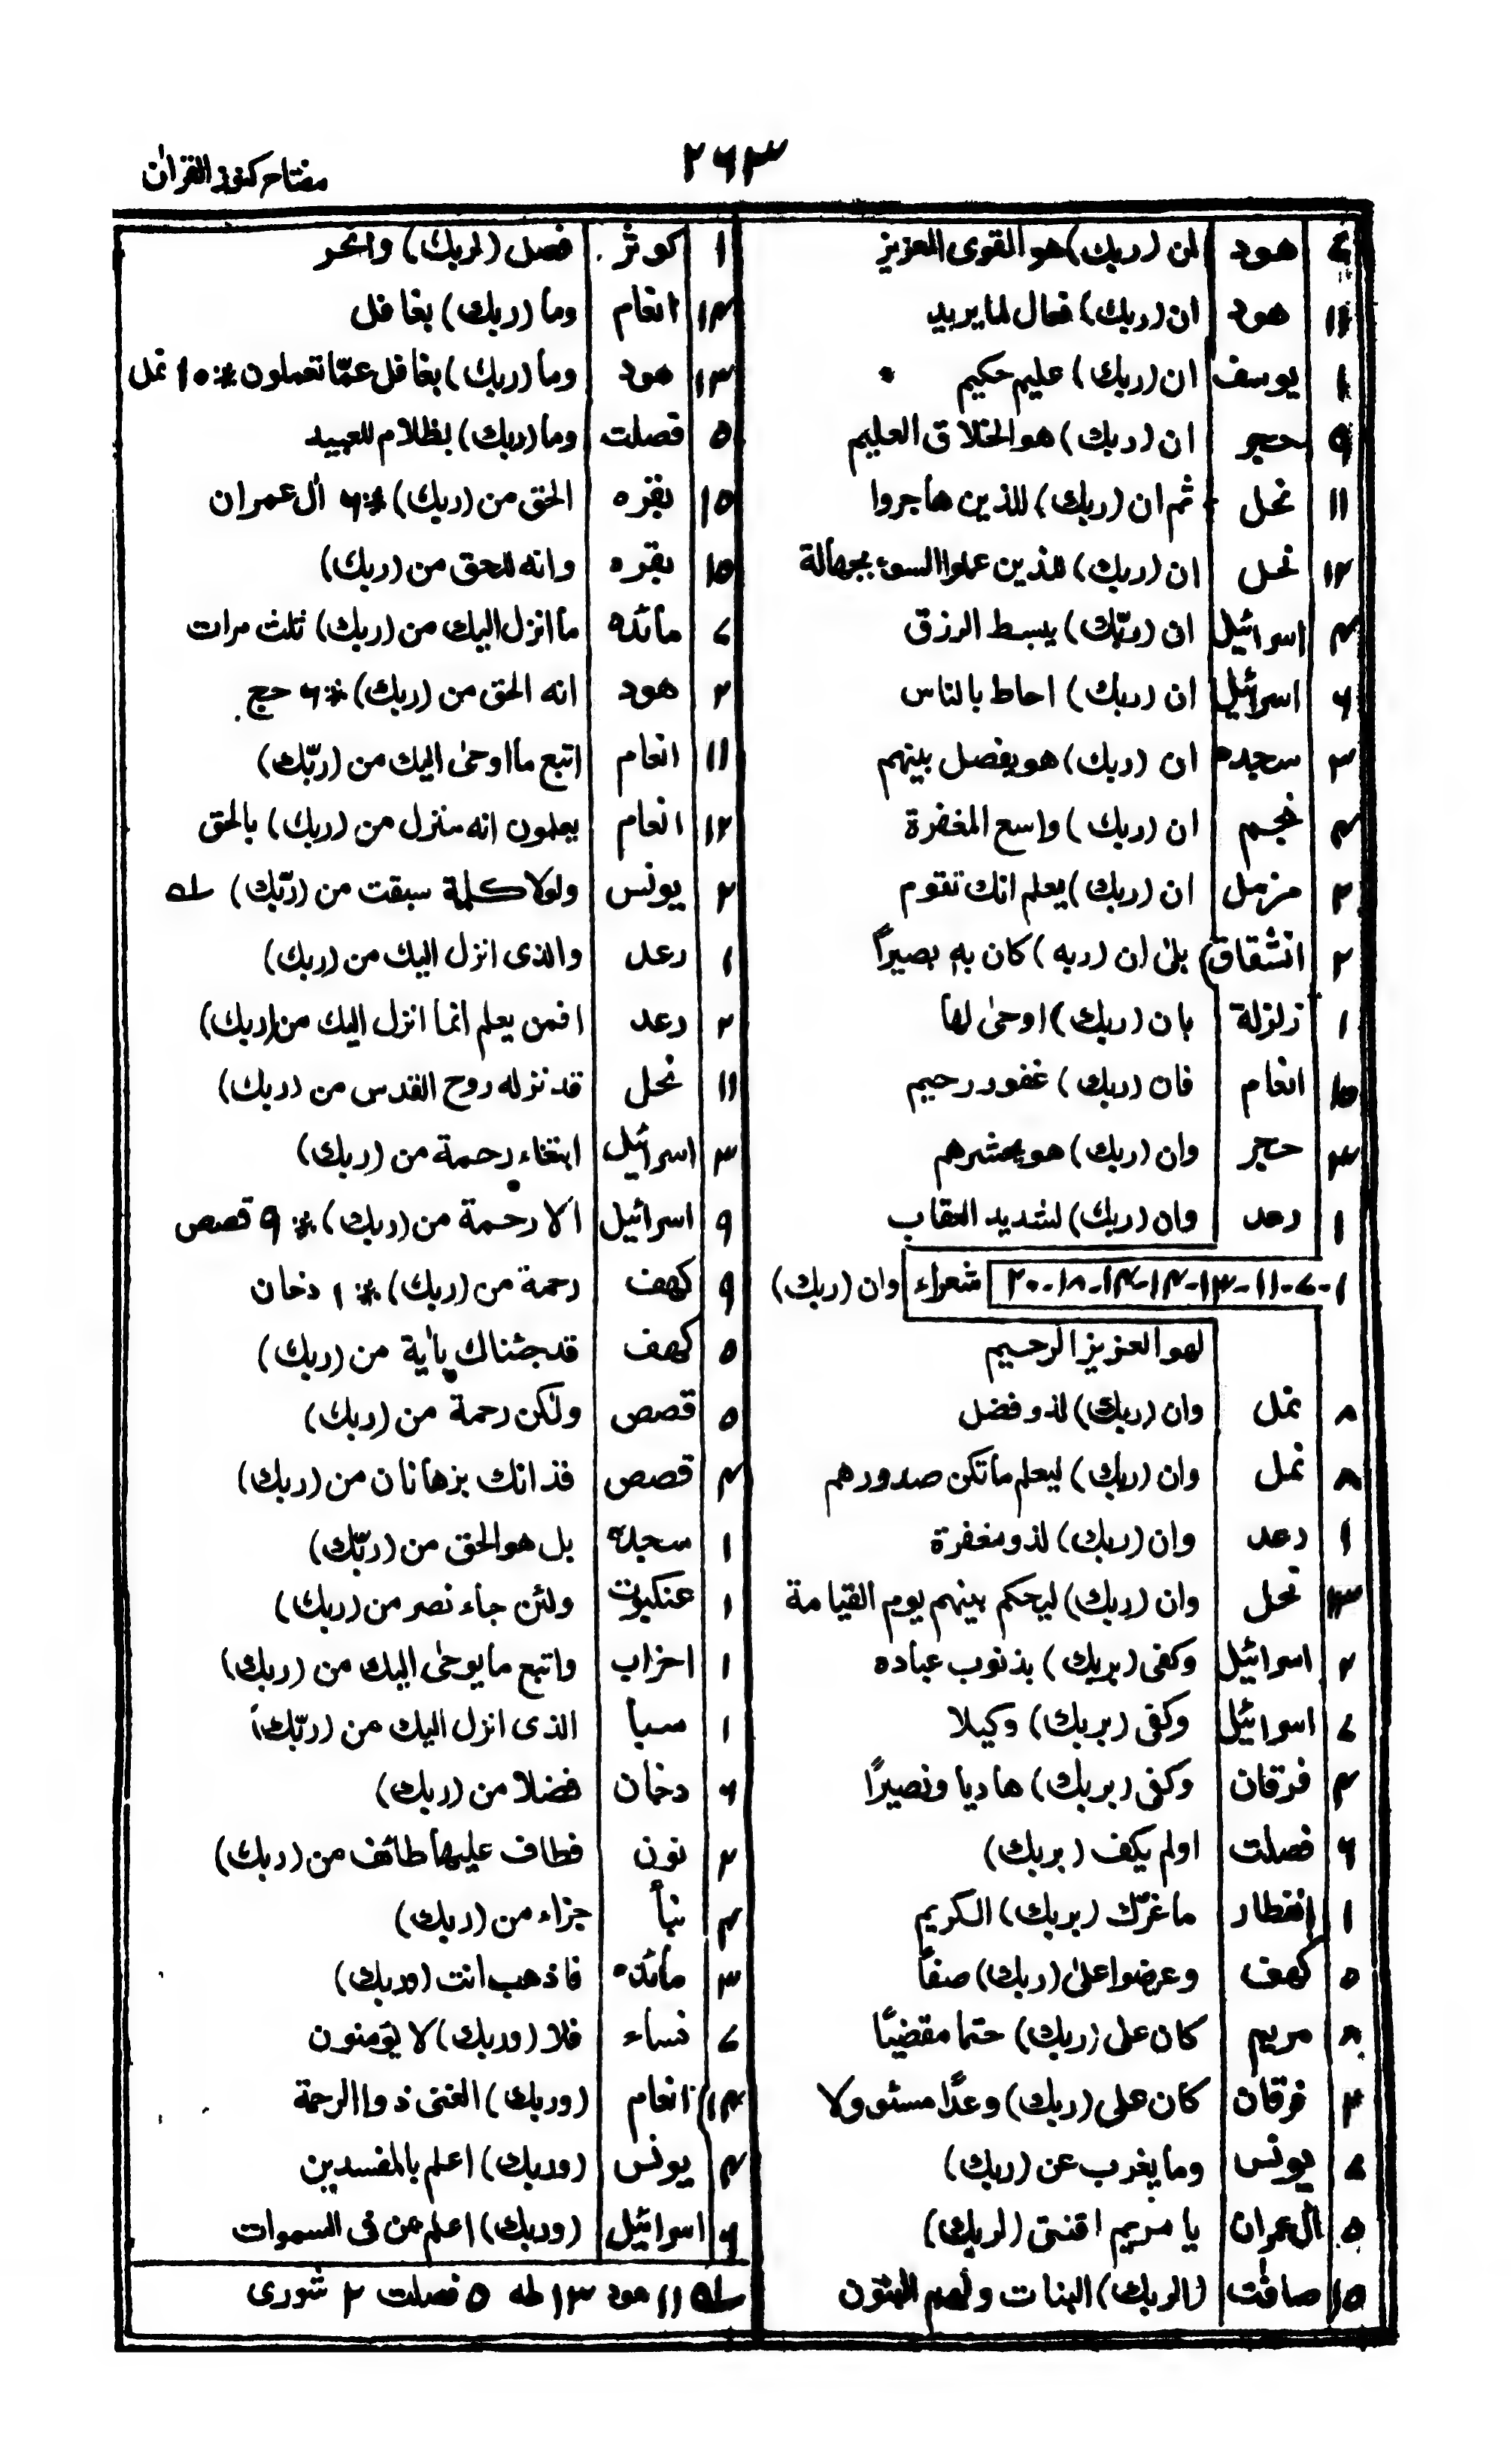 مفتاح كنوز القرآن
۲۶۳
۶ هود ان (ربك) هو القوى العزيز
۱۱ هود ان (ربك) فعال لما يريد
۱ يوسف ان (ربك) عليم حكيم *
۹ حجر ان (ربك) هو الخلاق العليم
۱۱ نحل ثم ان (ربك) للذين هاجروا
۱۲ نحل ان (ربك) للذين عملوا السوء بجهالة
۴ اسرائيل ان (ربّك) يبسط الرزق
۶ اسرائيل ان (ربك) احاط بالناس
۳ سجده ان (ربك) هو يفصل بينهم
۴ نجم ان (ربك) واسع المغفرة
۲ مزمل ان (ربك) يعلم انك تقوم
۲ انشقاق بلىٰ ان (ربه) كان به بصيراً
۱ زلزلة بان (ربك) اوحىٰ لها
۱۵ انعام فان (ربك) غفور رحيم
۳ حجر وان (ربك) هو يحشرهم
۱ رعد وان (ربك) لشديد العقاب
۱-۷-۱۱-۱۳-۱۴-۱۴-۱۸-۲۰ شعراء وان (ربك)
لهو العزيز الرحيم
۸ نمل وان (ربك) لذو فضل
۸ نمل وان (ربك) ليعلم ما تكن صدورهم
۱ رعد وان (ربك) لذو مغفرة
۱۳ نحل وان (ربك) ليحكم بينهم يوم القيامة
۲ اسرائيل وكفى (بربك) بذنوب عباده
۷ اسرائيل وكفى (بربك) وكيلا
۴ فرقان وكفى (بربك) هاديا ونصيراً
۶ فصلت اولم يكف (بربك)
۱ انفطار ما غرّك (بربك) الكريم
۵ كهف وعرضوا علىٰ (ربك) صفاً
۸ مريم كان على (ربك) حتما مقضيًا
۲ فرقان كان على (ربك) وعدًا مسئوولا
۷ يونس وما يغرب عن (ربك)
۵ اٰل عمران يا مريم اقنتى (لربك)
۱۵ صافٰت (الربك) البنات ولهم البنون
۱ كوثر فصل (لربك) وانحر
۱۴ انعام وما (ربك) بغافل
۱۳ هود وما (ربك) بغافل عمّا تعملون * ۱۰ نمل
۵ فصلت وما (ربك) بظلام للعبيد
۱۵ بقره الحق من (ربك) * ۶ اٰل عمران
۱۵ بقره وانه للحق من (ربك)
۷ مائده ما انزل اليك من (ربك) ثلث مرات
۲ هود انه الحق من (ربك) * ۶ حج
۱۱ انعام اتبع ما اوحىٰ اليك من (ربّك)
۱۲ انعام يعلمون انه منزل من (ربك) بالحق
۲ يونس ولولا كلمة سبقت من (ربّك) لـه
۱ رعد والذى انزل اليك من (ربك)
۲ رعد افمن يعلم انما انزل اليك من (ربك)
۱۱ نحل قد نزله روح القدس من (ربك)
۳ اسرائيل ابتغاء رحمة من (ربك)
۹ اسرائيل الا رحمة من (ربك) * ۹ قصص
۹ كهف رحمة من (ربك) * ۱ دخان
۵ كهف قد جئناك باٰية من (ربك)
۵ قصص ولٰكن رحمة من (ربك)
۴ قصص فذانك برهانان من (ربك)
۱ سجده بل هو الحق من (ربّك)
۱ عنكبوت ولئن جاء نصر من (ربك)
۱ احزاب واتبع ما يوحىٰ اليك من (ربك)
۱ سبا الذى انزل اليك من (ربّك)
۶ دخان فضلا من (ربك)
۲ نون فطاف عليها طائف من (ربك)
۴ نبأ جزاء من (ربك)
۳ مائده فاذهب انت (وربك)
۷ نساء فلا (وربك) لا يؤمنون
۱۴ انعام (وربك) الغنى ذوا الرحمة
۴ يونس (وربك) اعلم بالمفسدين
۶ اسرائيل (وربك) اعلم من فى السموات
لـه ۱۱ هود ۱۳ طه ۵ فصلت ۲ شورى